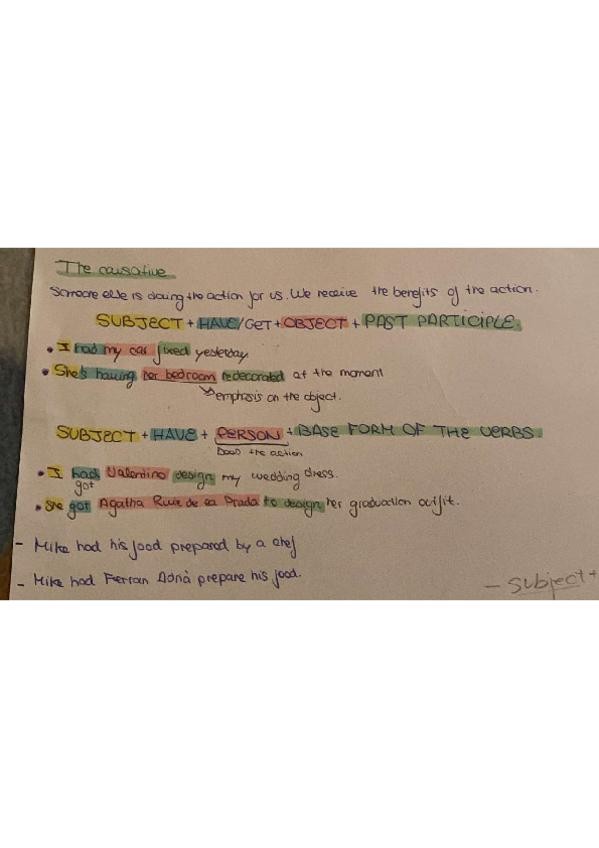 The causative
Someone else is doing the action for us. We receive the benefits of the action.
SUBJECT + HAVE/GET + OBJECT + PAST PARTICIPLE.
• I had my car fixed yesterday
• She's having her bedroom redecorated at the moment
emphasis on the object.
SUBJECT + HAVE + PERSON + BASE FORM OF THE VERBS.
Does the action
• I had Valentino design my wedding dress.
got
• She got Agatha Ruiz de la Prada to design her graduation outfit.
- Mike had his food prepared by a chef
- Mike had Ferran Adrià prepare his food.
- Subject +